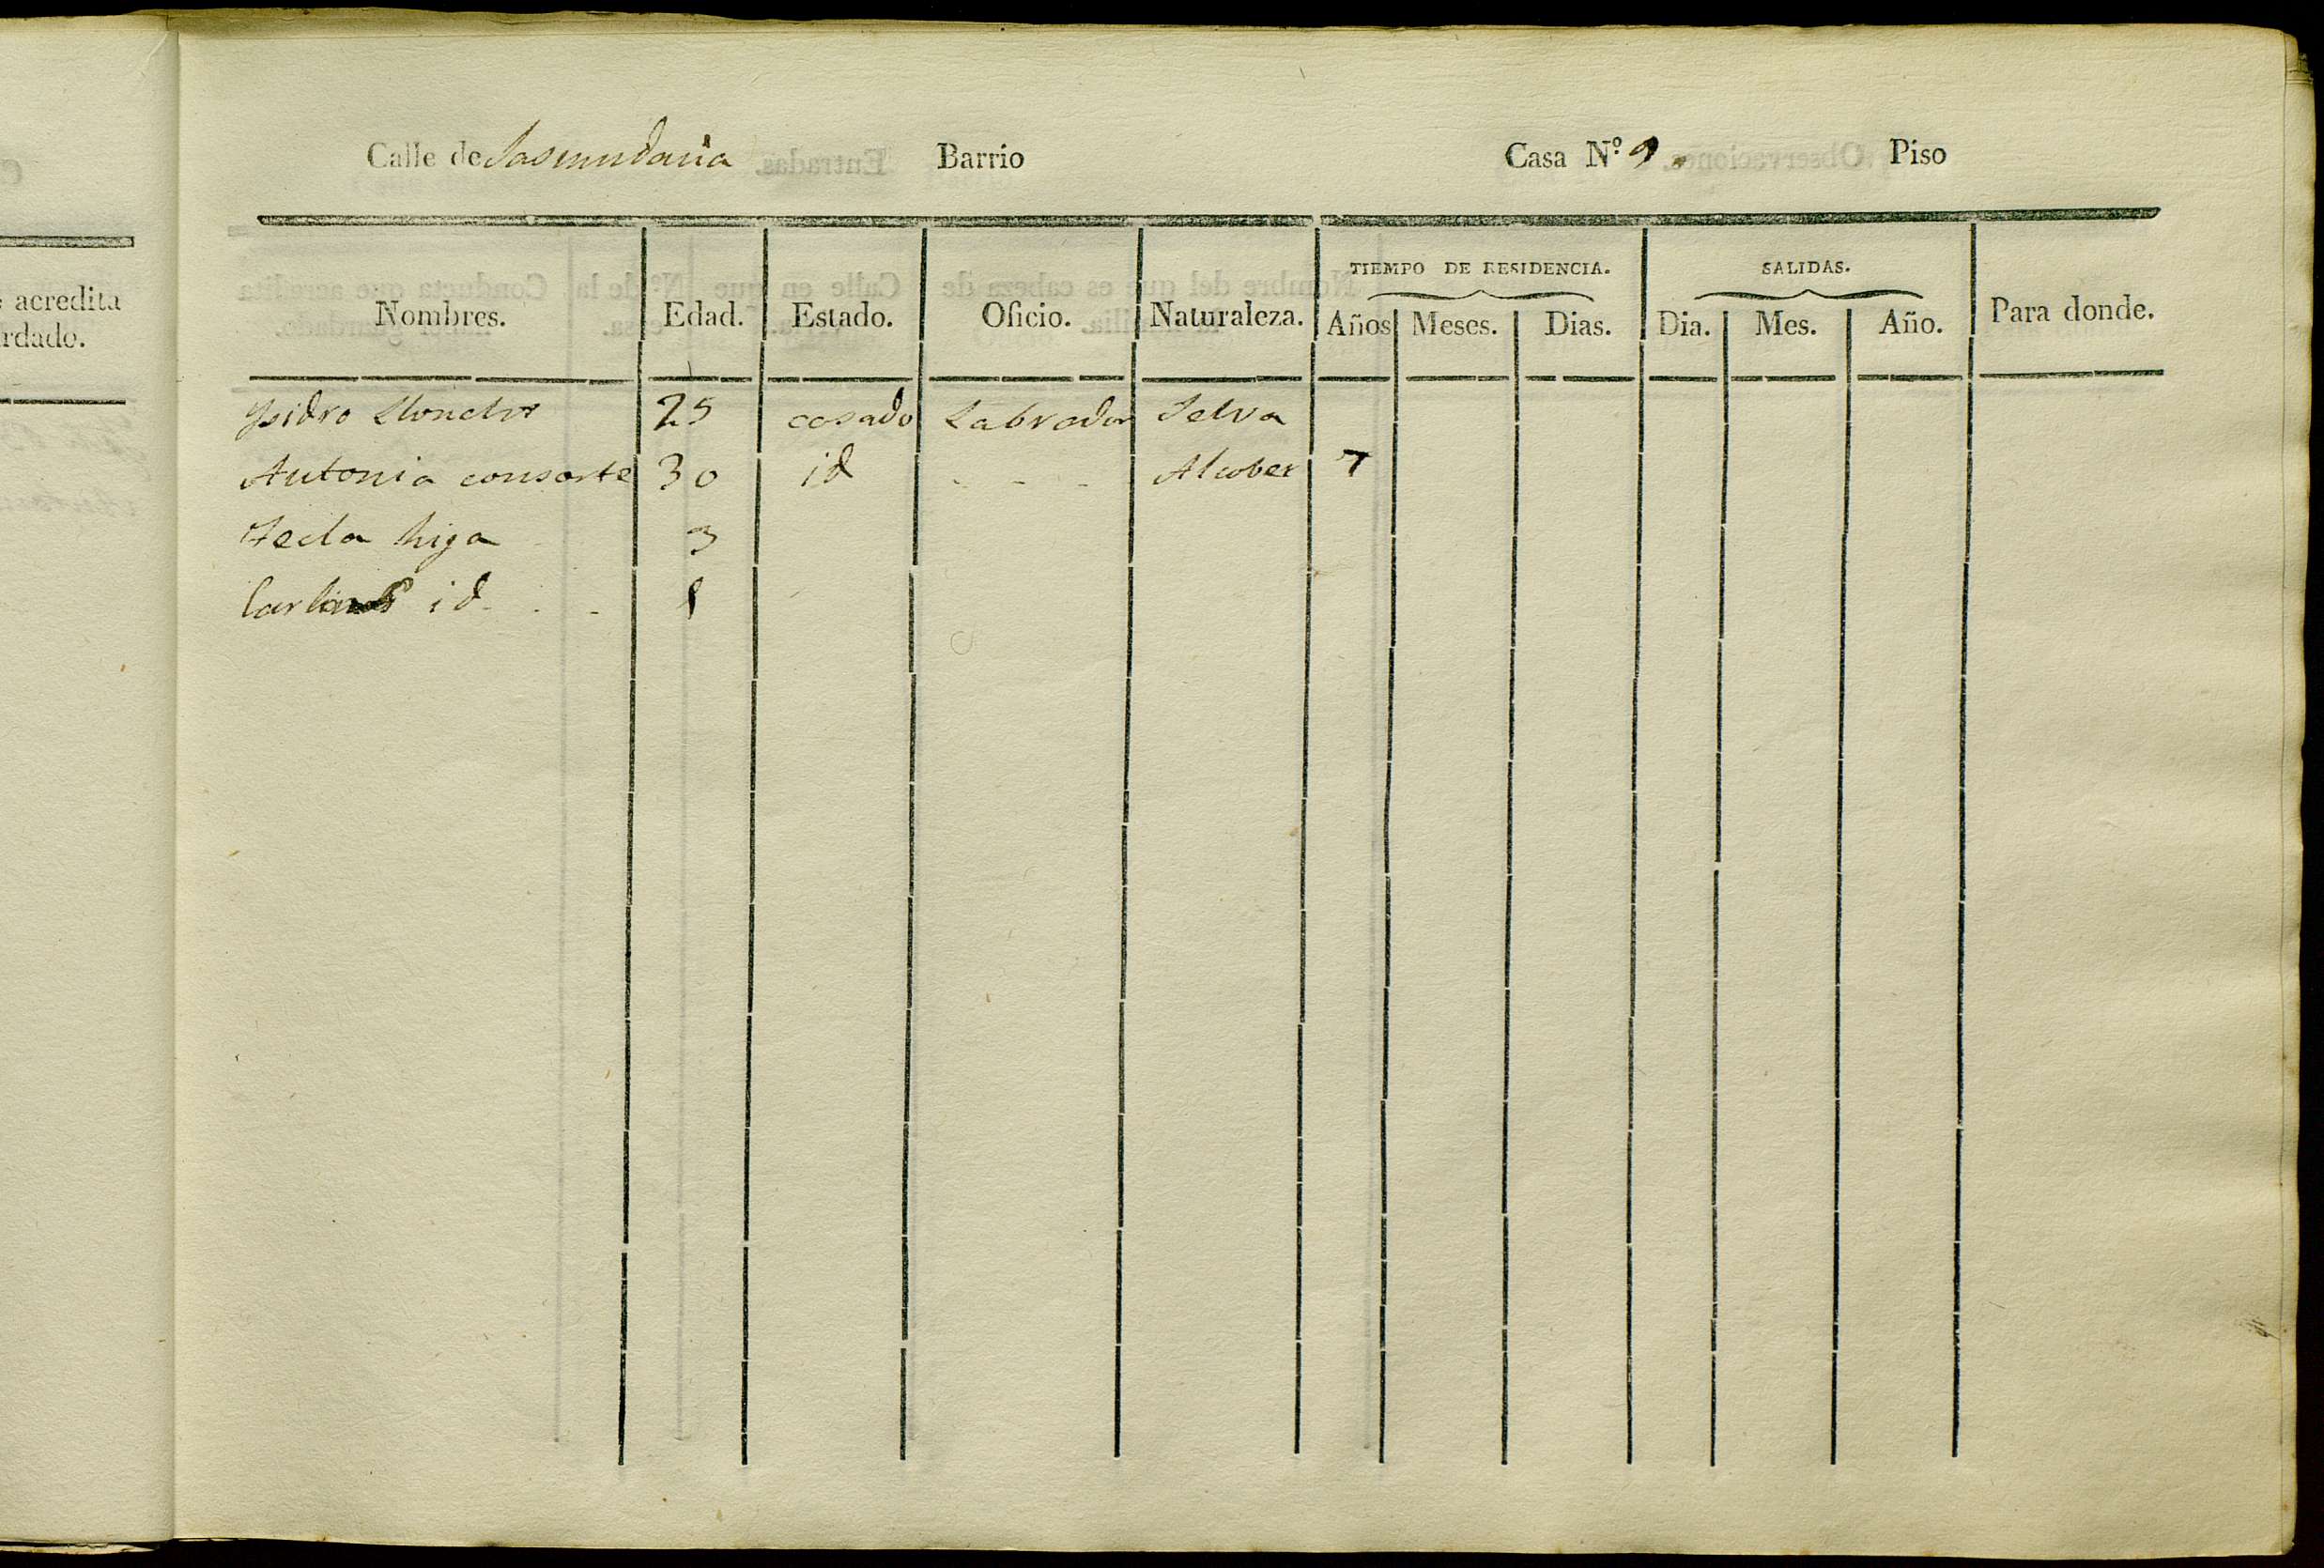 acredita
rdado.
Calle de Barrio Casa N.º 9. Piso
TIEMPO DE RESIDENCIA. SALIDAS.
Nombres. Edad. Estado. Oficio. Naturaleza. Años Meses. Dias. Dia. Mes. Año. Para donde.
Ysidro 25 casado Labrador Selva
Antonia consorte 30 id - - - Alcover 7
Tecla higa 3
id - - 1